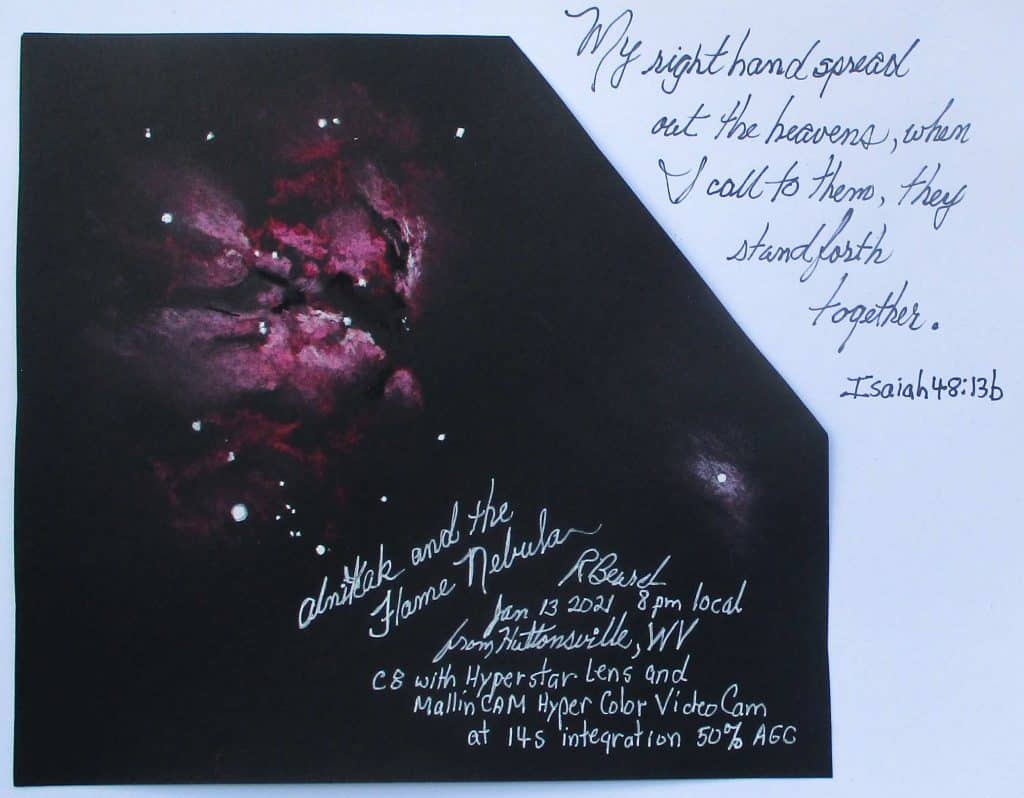 My right hand spread
out the heavens, when
I call to them, they
stand forth
together.
Isaiah 48:13b
Alnitak and the
Flame Nebula
R Beard
Jan 13 2021 8pm local
from Huttonsville, WV
C8 with Hyperstar Lens and
MallinCAM Hyper Color Video Cam
at 14s integration 50% AGC